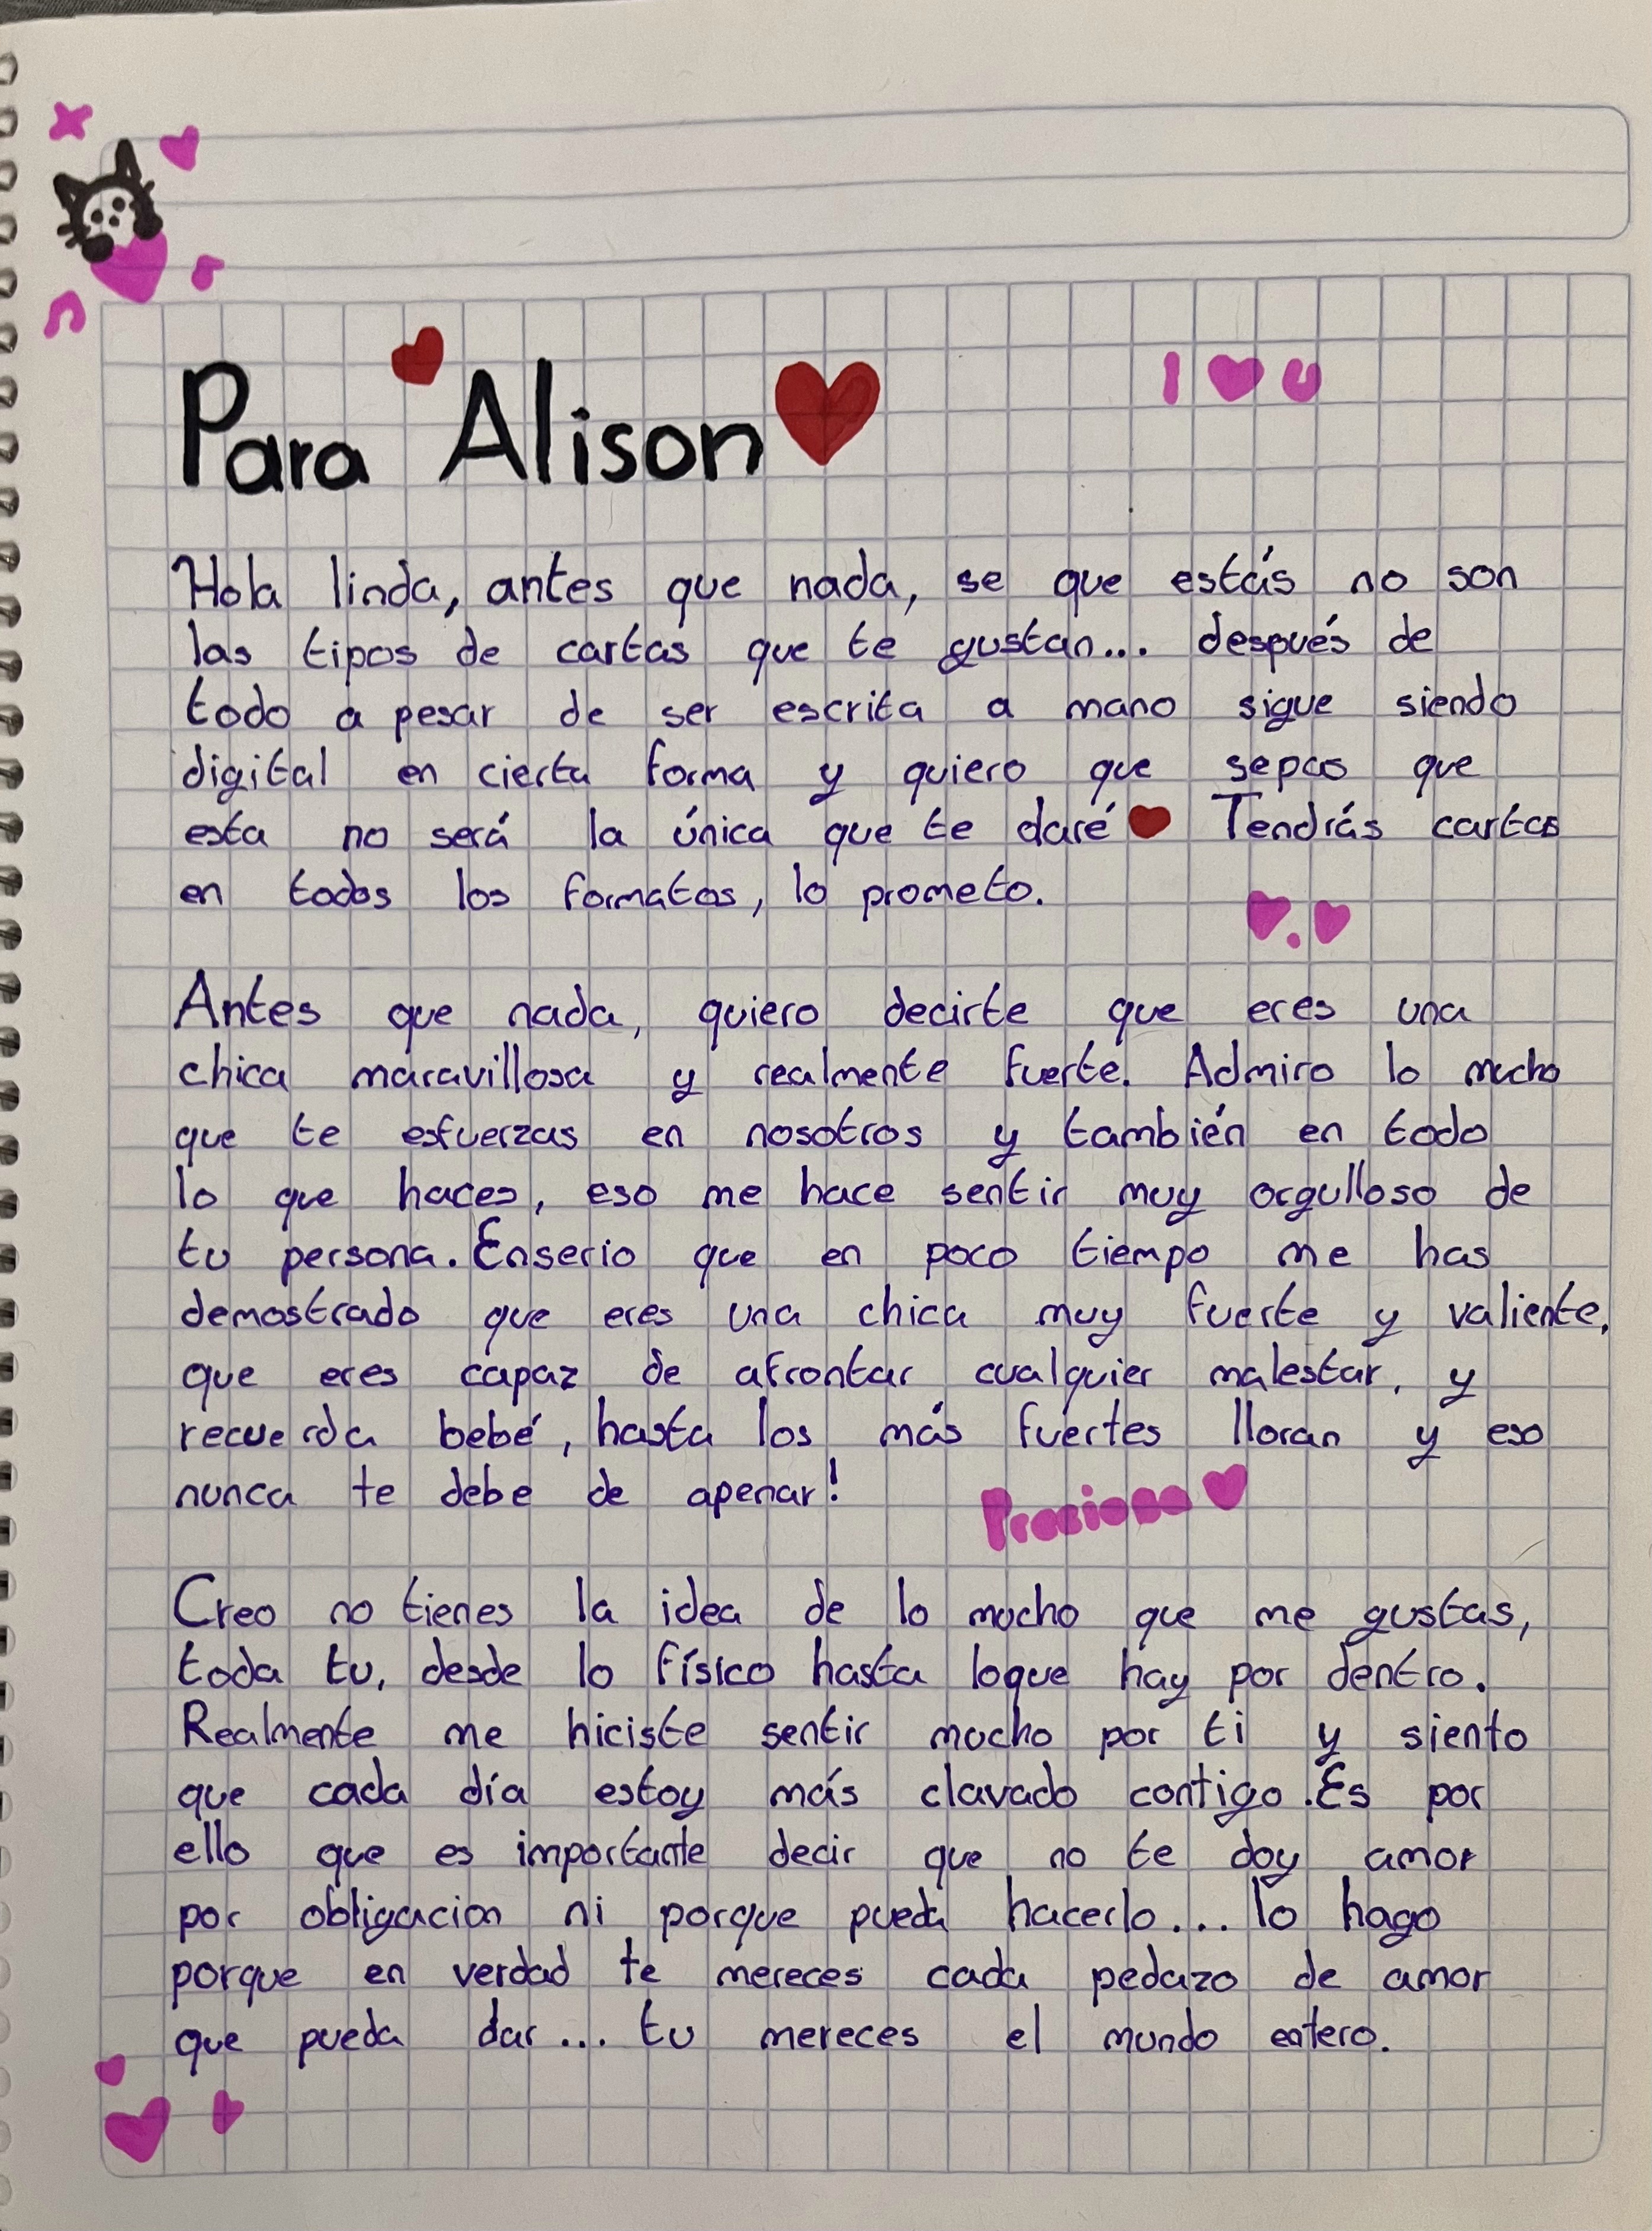 I ♥ U
Para Alison
Hola linda, antes que nada, se que estás no son
las tipos de cartas que te gustan... después de
todo a pesar de ser escrita a mano sigue siendo
digital en cierta forma y quiero que sepas que
esta no será la única que te daré ♥ Tendrás cartas
en todos los formatos, lo prometo.
Antes que nada, quiero decirte que eres una
chica maravillosa y realmente fuerte. Admiro lo mucho
que te esfuerzas en nosotros y también en todo
lo que haces, eso me hace sentir muy orgulloso de
tu persona. Enserio que en poco tiempo me has
demostrado que eres una chica muy fuerte y valiente,
que eres capaz de afrontar cualquier malestar, y
recuerda bebé, hasta los más fuertes lloran y eso
nunca te debe de apenar!
Preciosa ♥
Creo no tienes la idea de lo mucho que me gustas,
toda tu, desde lo físico hasta loque hay por dentro.
Realmente me hiciste sentir mucho por ti y siento
que cada día estoy más clavado contigo. Es por
ello que es importante decir que no te doy amor
por obligacion ni porque pueda hacerlo... lo hago
porque en verdad te mereces cada pedazo de amor
que pueda dar... tu mereces el mundo entero.